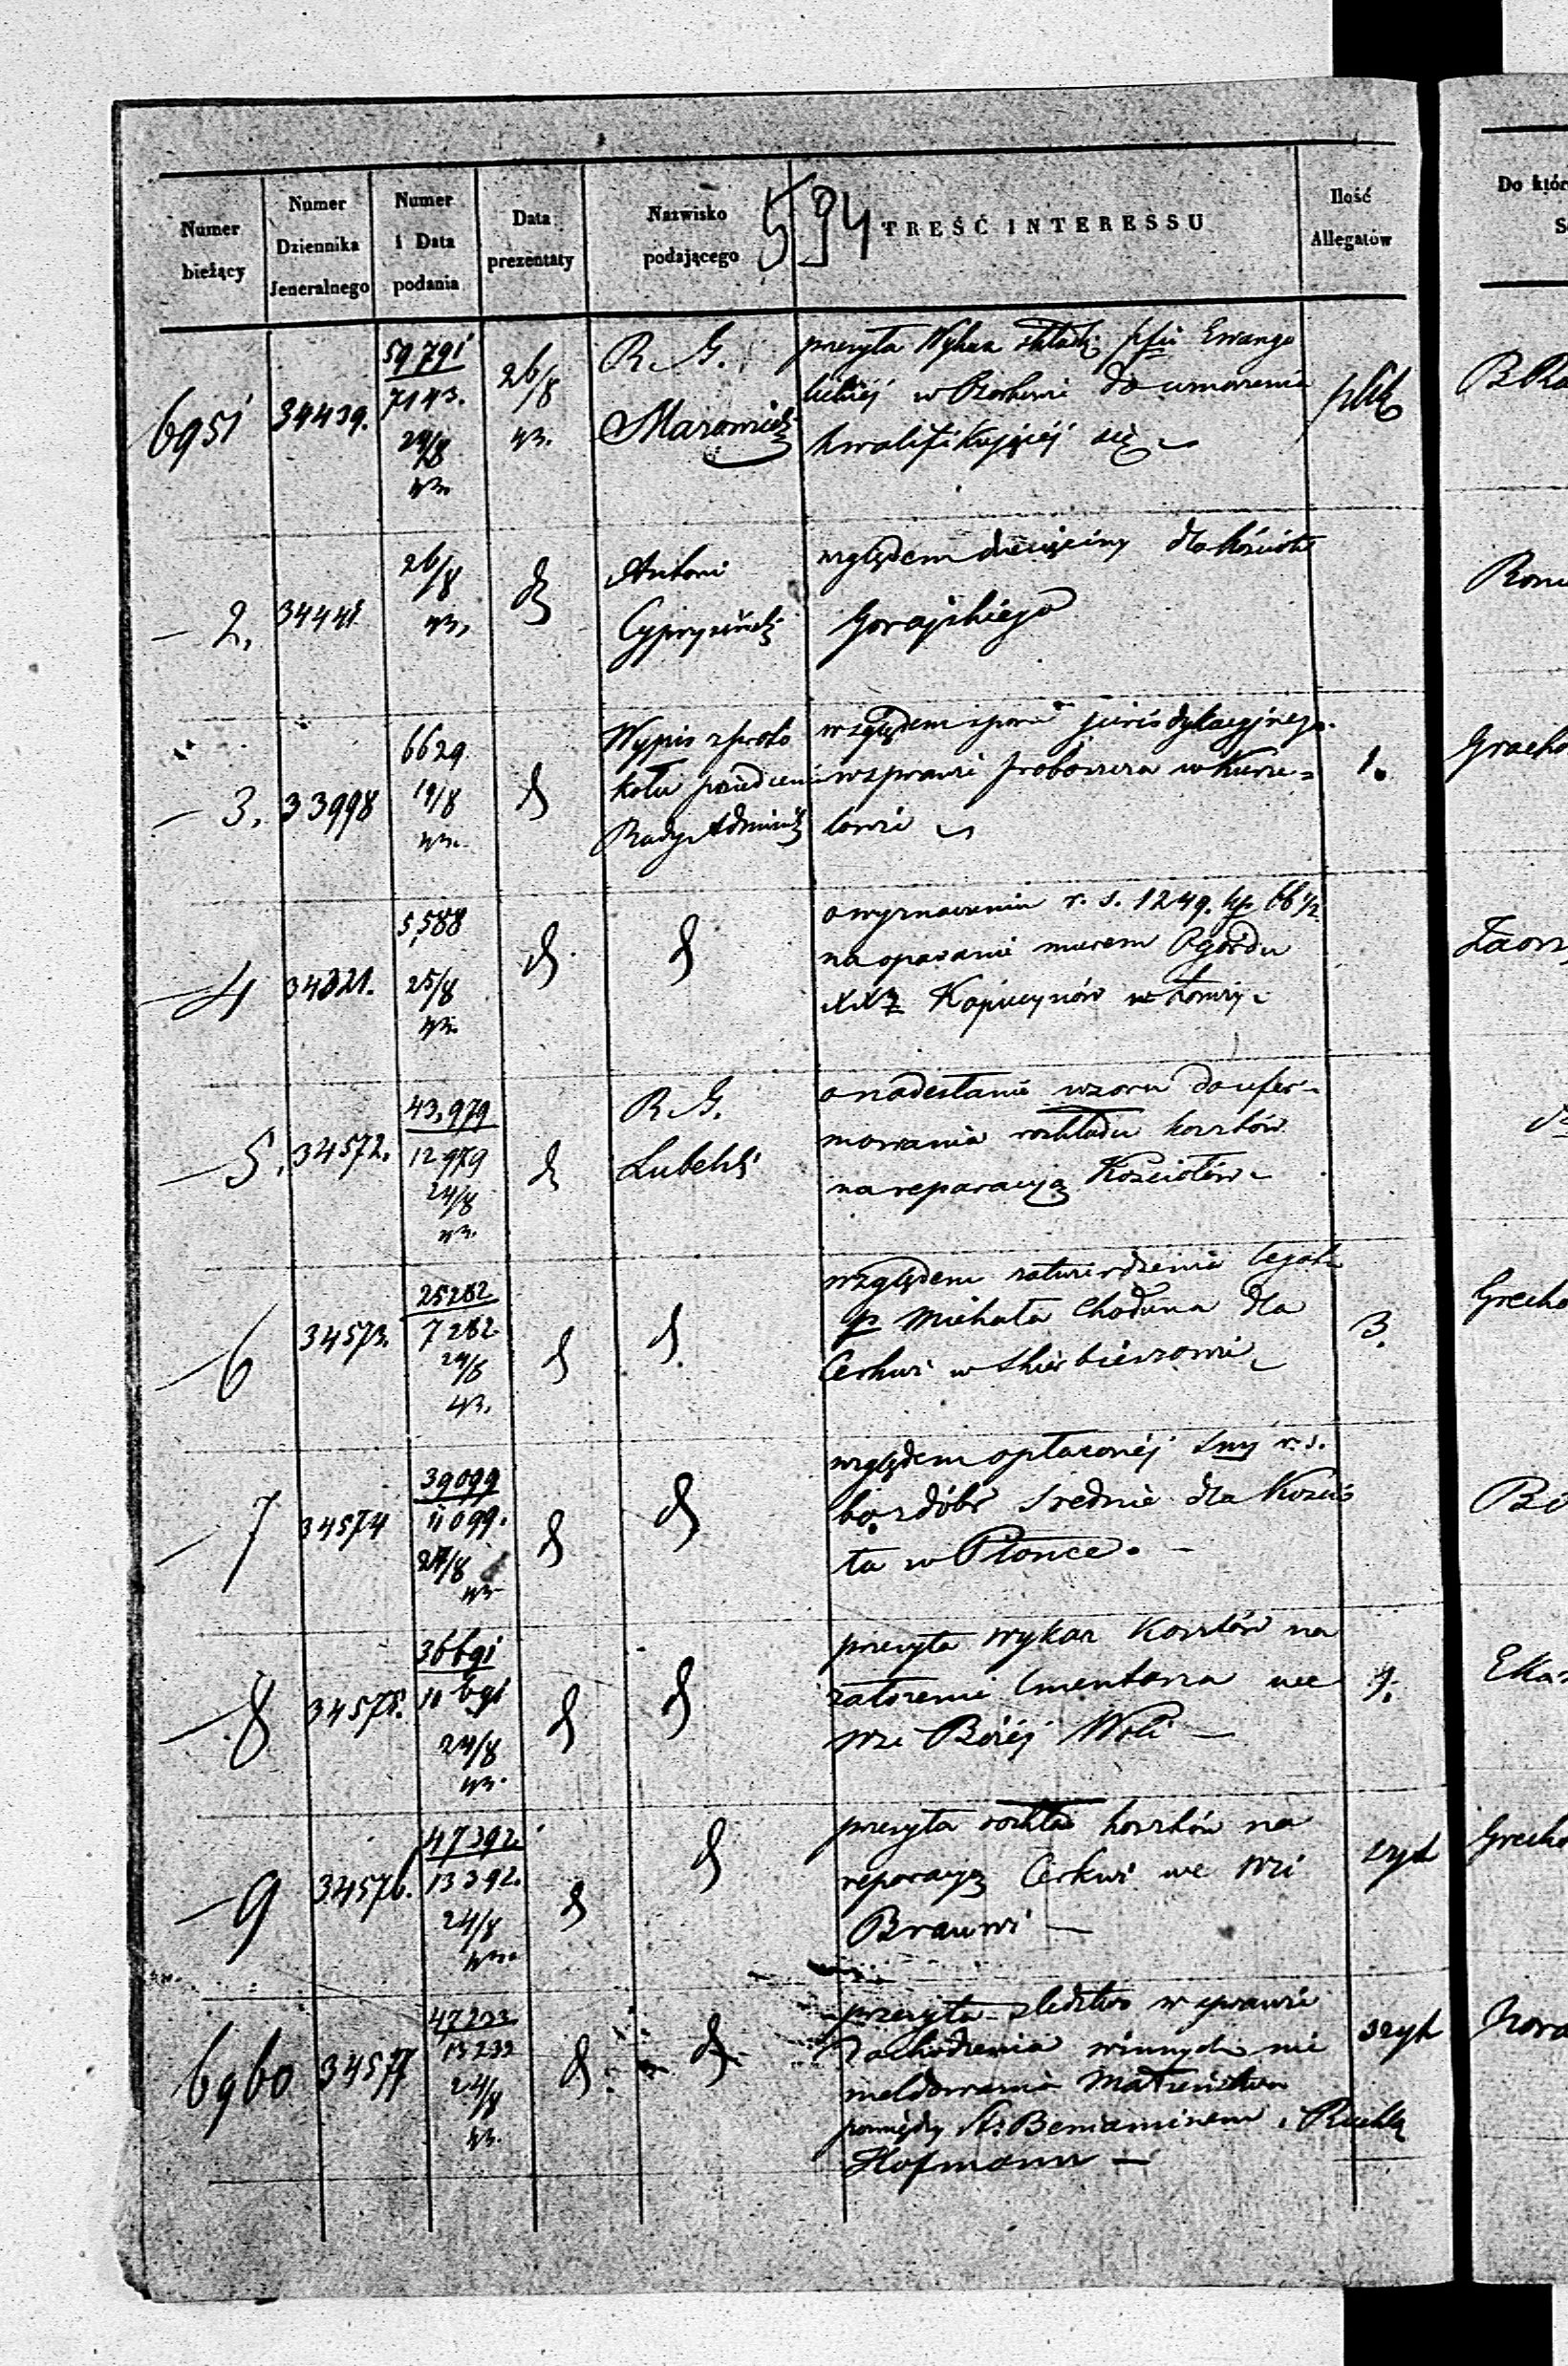 594
Numer bieżący
Numer Dziennika Jeneralnego
Numer i Data podania
Data prezentaty
Nazwisko podającego
TREŚĆ INTERESSU
Ilość Allegatów
Do któr
6951
34439.
59791
7143.
24/8
43.
26/8
43.
R. G.
Mazowiecki
przesyła Wykaz składki
Ewange
lickiej w do umorzenia
kwalifikującej się
plik
— 2.
34441
26/8
43.
Antoni
względem dziesięciny dla Kościoła
Gorajskiego
— 3.
33998
6629
19/8
43.
Wypis z proto
kołu posiedzenia
Rady Administ
względem sporu jurisdykcyjnego
w sprawie proboszcza w Kurze=
lowie
1.
— 4
34321.
5,588
25/8
43.
o wyznaczenie r. s. 1249. kp 66 1/2
na oparanie murem Ogrodu
XXŻ Kapucynów w Łomży
— 5.
34572.
43.979
12979
24/8
43.
R. G.
Lubelski
o nadesłanie wzoru do ufor=
mowania rozkładu kosztów
na reparacyą Kościołów
— 6
34573.
25282
7282
24/8
43.
względem zatwierdzenia legatu
p Michała Choduna dla
Cerkwi w Skierbieszowie
3.
Grecho
— 7
34574
39099
11099.
24/8
43
względem opłaconej Smy r. s.
60. z dóbr Srednie dla Kościo
ła w Płonce. —
— 8
34575.
36691
10691
24/8
43.
przesyła wykaz Kosztów na
założenie Cmentarza we
wsi Bożej Woli —
4.
— 9
34576.
47392
13392.
24/8
43.
przesyła rozkład kosztów na
reparacyą Cerkwi we wsi
—
szyt
Grecho
6960
34577
47233
13233
24/8
43.
przesyła śledztwo w sprawie
dochodzenia winnych nie
meldowania Małżeństwa
pomiędzy St. Beniaminem i Ruchlą
Hofmann —
szyt